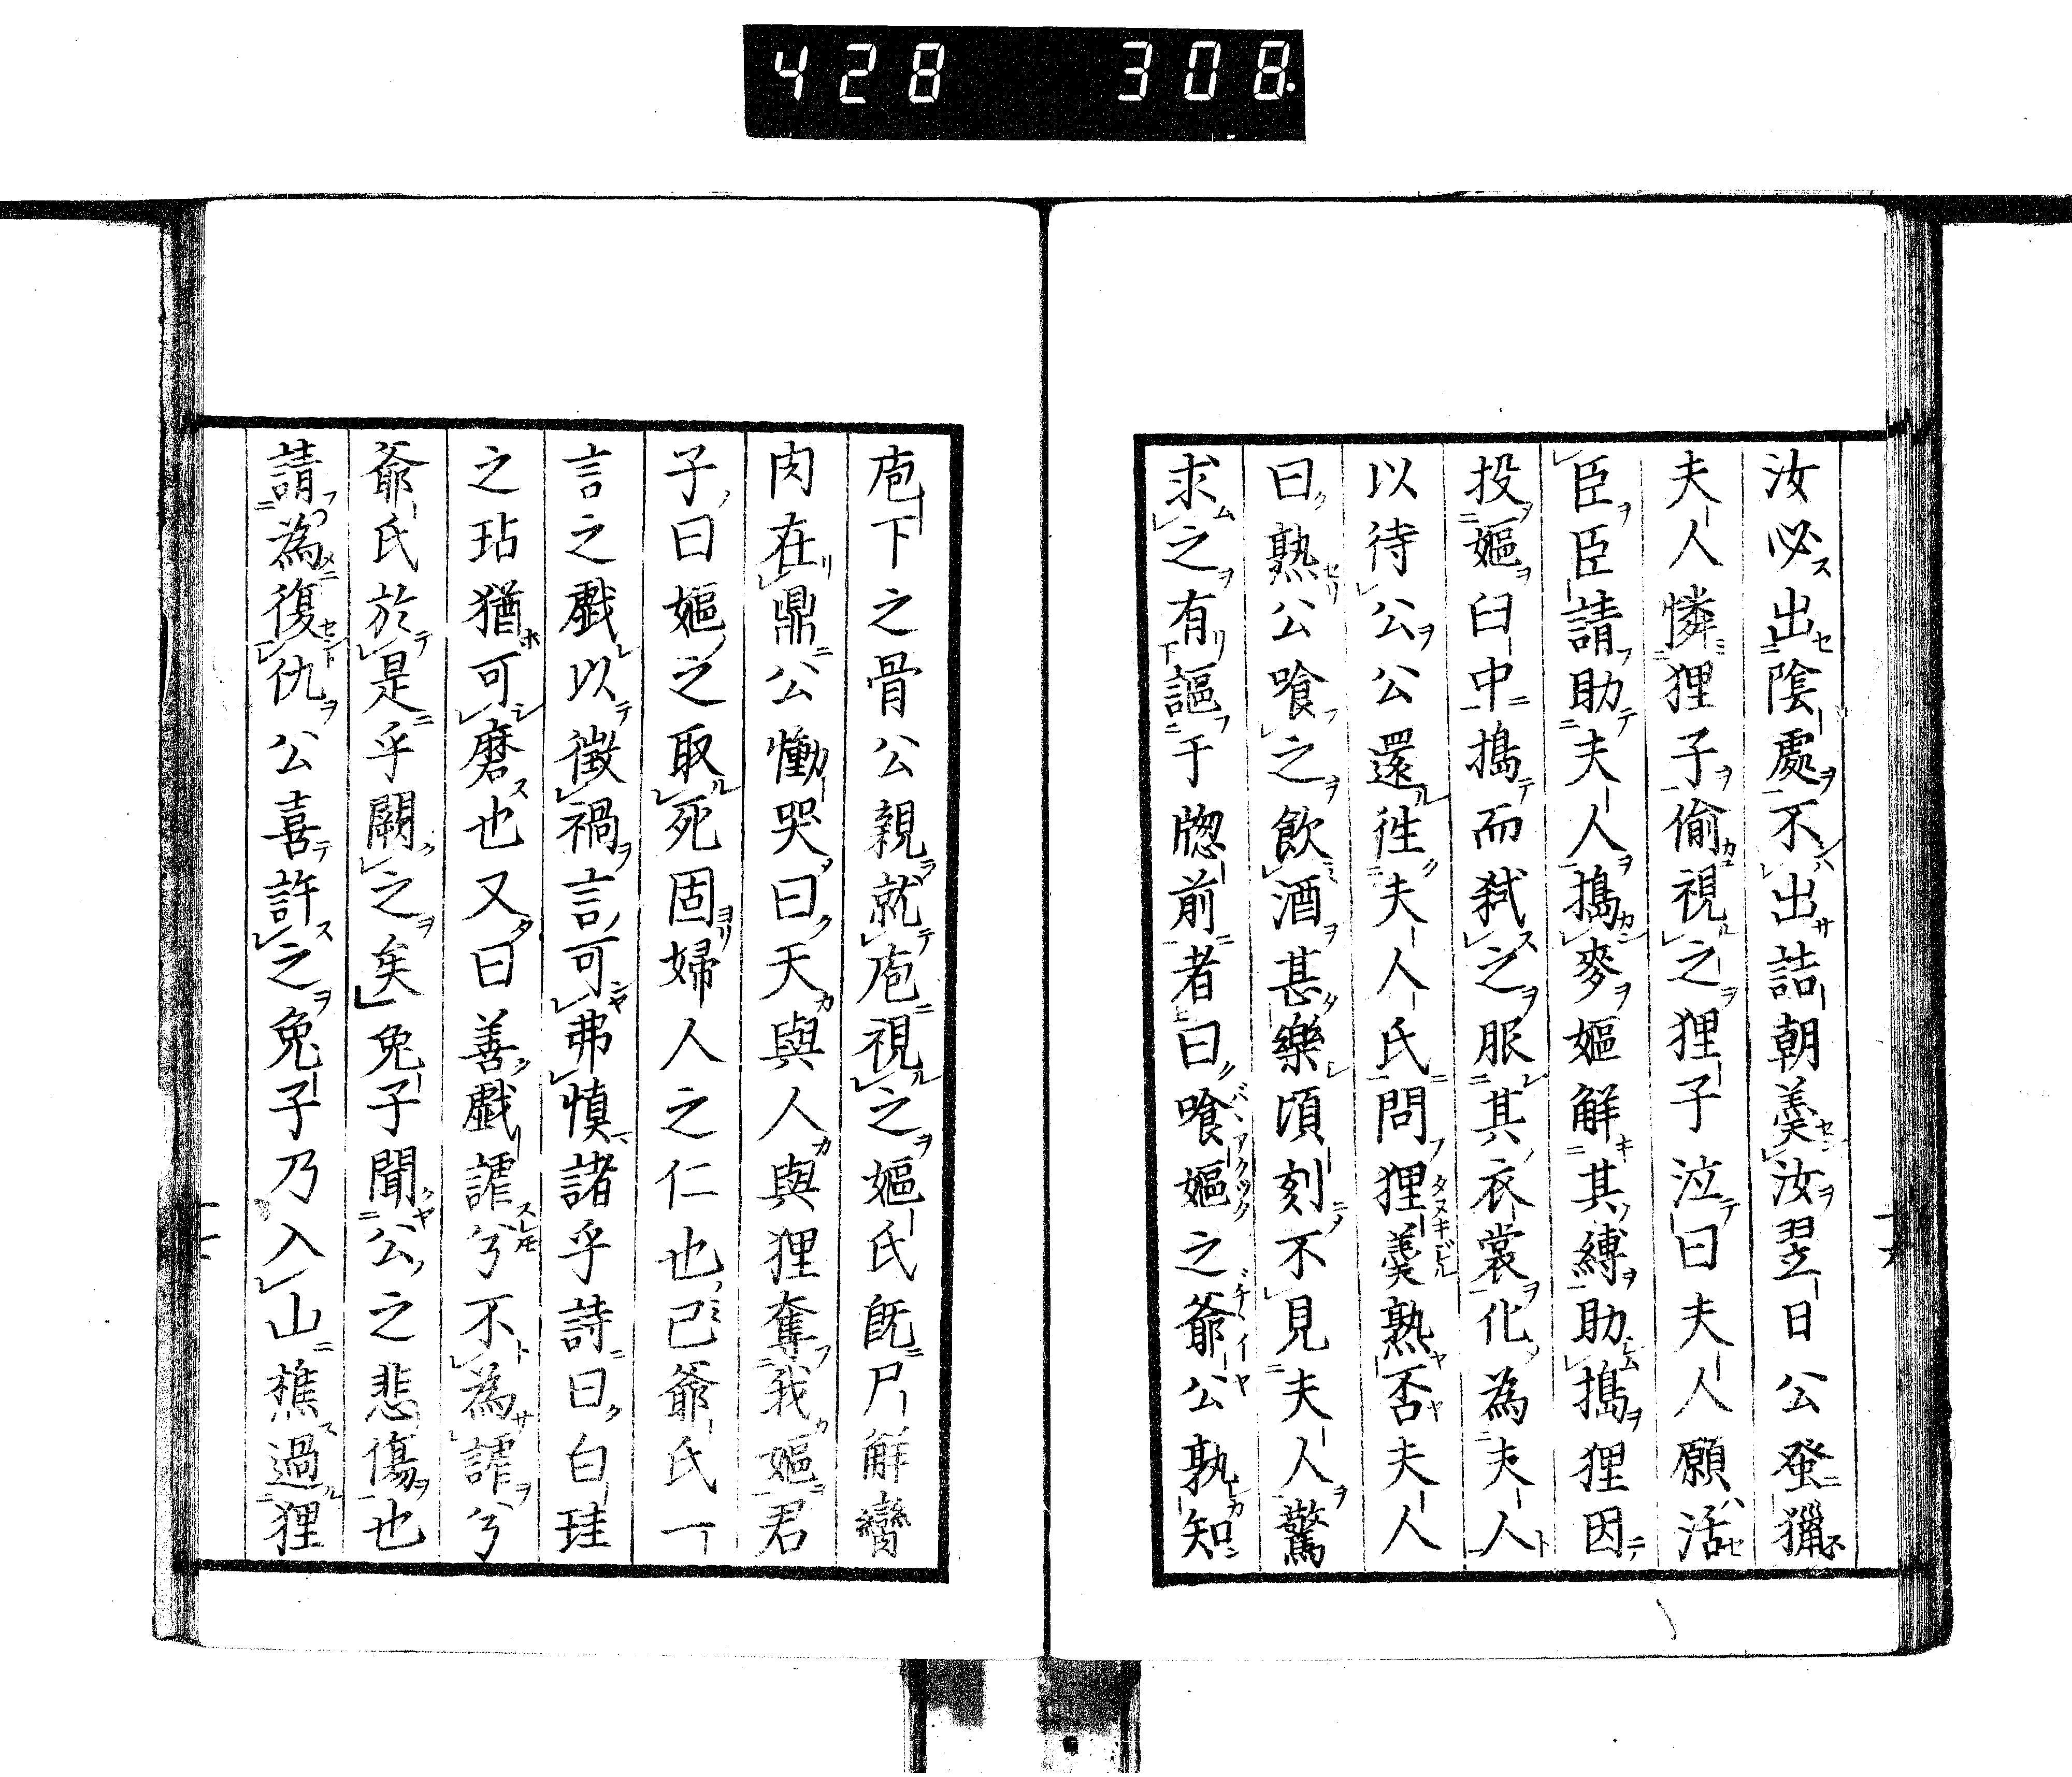 428 308.
汝必出陰處不出詰朝羮汝翌日公發獵
夫人憐狸子偷視之狸子泣曰夫人願活
臣臣請助夫人搗麥嫗解其縛助搗狸因
投嫗臼中搗而弑之服其衣裳化為夫人
以待公公還徃夫人氏問狸羮熟否夫人
曰熟公喰之飲酒甚樂頃刻不見夫人驚
求之有謳于牎前者曰喰嫗之爺公孰知
庖下之骨公親就庖視之嫗氏既尸解臠
肉在鼎公慟哭曰天與人與狸奪我嫗君
子曰嫗之取死固婦人之仁也已爺氏一
言之戲以徴禍言可弗慎諸乎詩曰白珪
之玷猶可磨也又曰善戲謔兮不為謔兮
爺氏於是乎闕之矣兔子聞公之悲傷也
請為復仇公喜許之兔子乃入山樵過狸